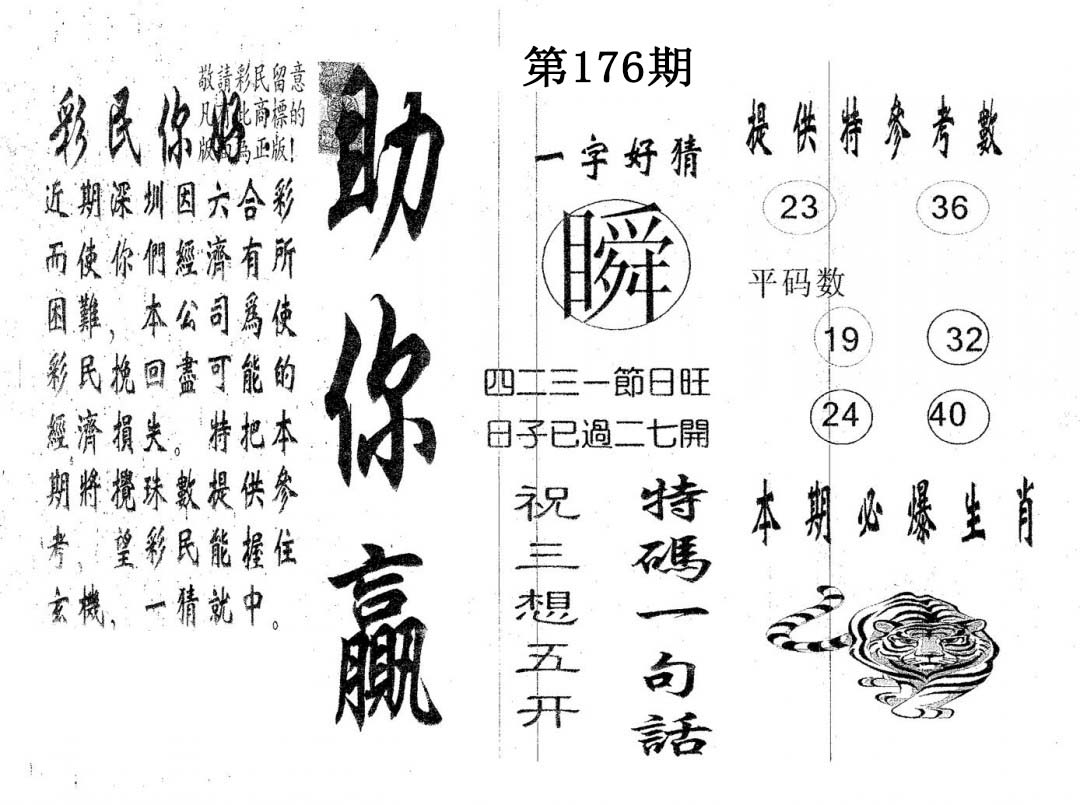 第176期
敬請彩民留意
凡 此商標的
版 為正版!
彩民你好
近期深圳因六合彩
而使你們經濟有所
困難,本公司爲使
彩民挽回盡可能的
經濟損失。特把本
期將攪珠數提供參
考,望彩民能握住
玄機,一猜就中。
助你贏
一字好猜
瞬
四二三一節日旺
日子已過二七開
祝三想五开
特碼一句話
提供特參考數
23 36
平码数
19 32
24 40
本期必爆生肖